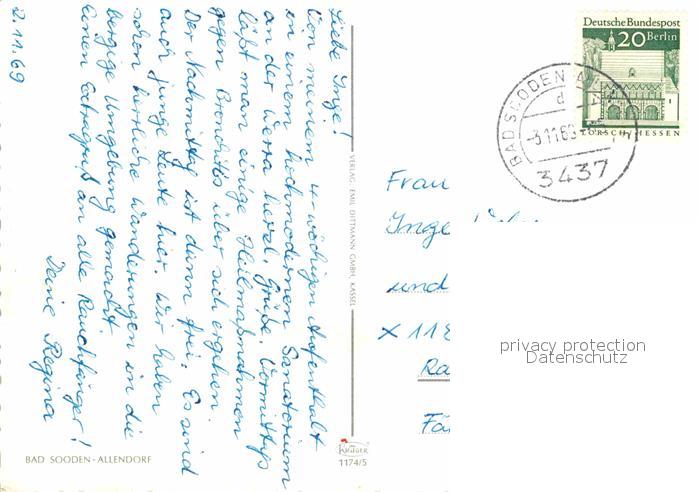 2.11.69
Liebe Inge!
Von meinem 4-wöchigen Aufenthalt
in einem hochmodernen Sanatorium
an der Werra herzl. Grüße. Vormittags
läßt man einige Heilmaßnahmen
gegen Bronchitis über sich ergehen.
Der Nachmittag ist dann frei. Es sind
auch junge Leute hier. Wir haben
schon herrliche Wanderungen in die
bergige Umgebung gemacht.
Einen Extragruß an alle Rauchfänger!
Deine Regina
BAD SOODEN-ALLENDORF
VERLAG EMIL DITTMANN GMBH, KASSEL
KRÜGER
1174/5
Deutsche Bundespost
20 Berlin
LORSCH/HESSEN
BAD SOODEN
d
-3.11.69
3437
Frau
Inge
und
X 118
Ra
Fä
privacy protection
Datenschutz